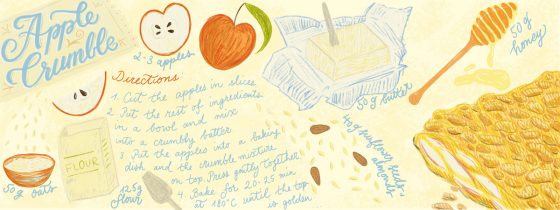 Apple
Crumble
2-3 apples
50g butter
50g
honey
Directions:
1. Cut the apples in slices
2. Put the rest of ingredients
in a bowl and mix
into a crumbly batter
3. Put the apples into a baking
dish and the crumble mixture
on top. Press gently together!
4. Bake for 20-25 min
at 180°C until the top
is golden
FLOUR
50g oats
125g
flour
40g sunflower seeds,
almonds